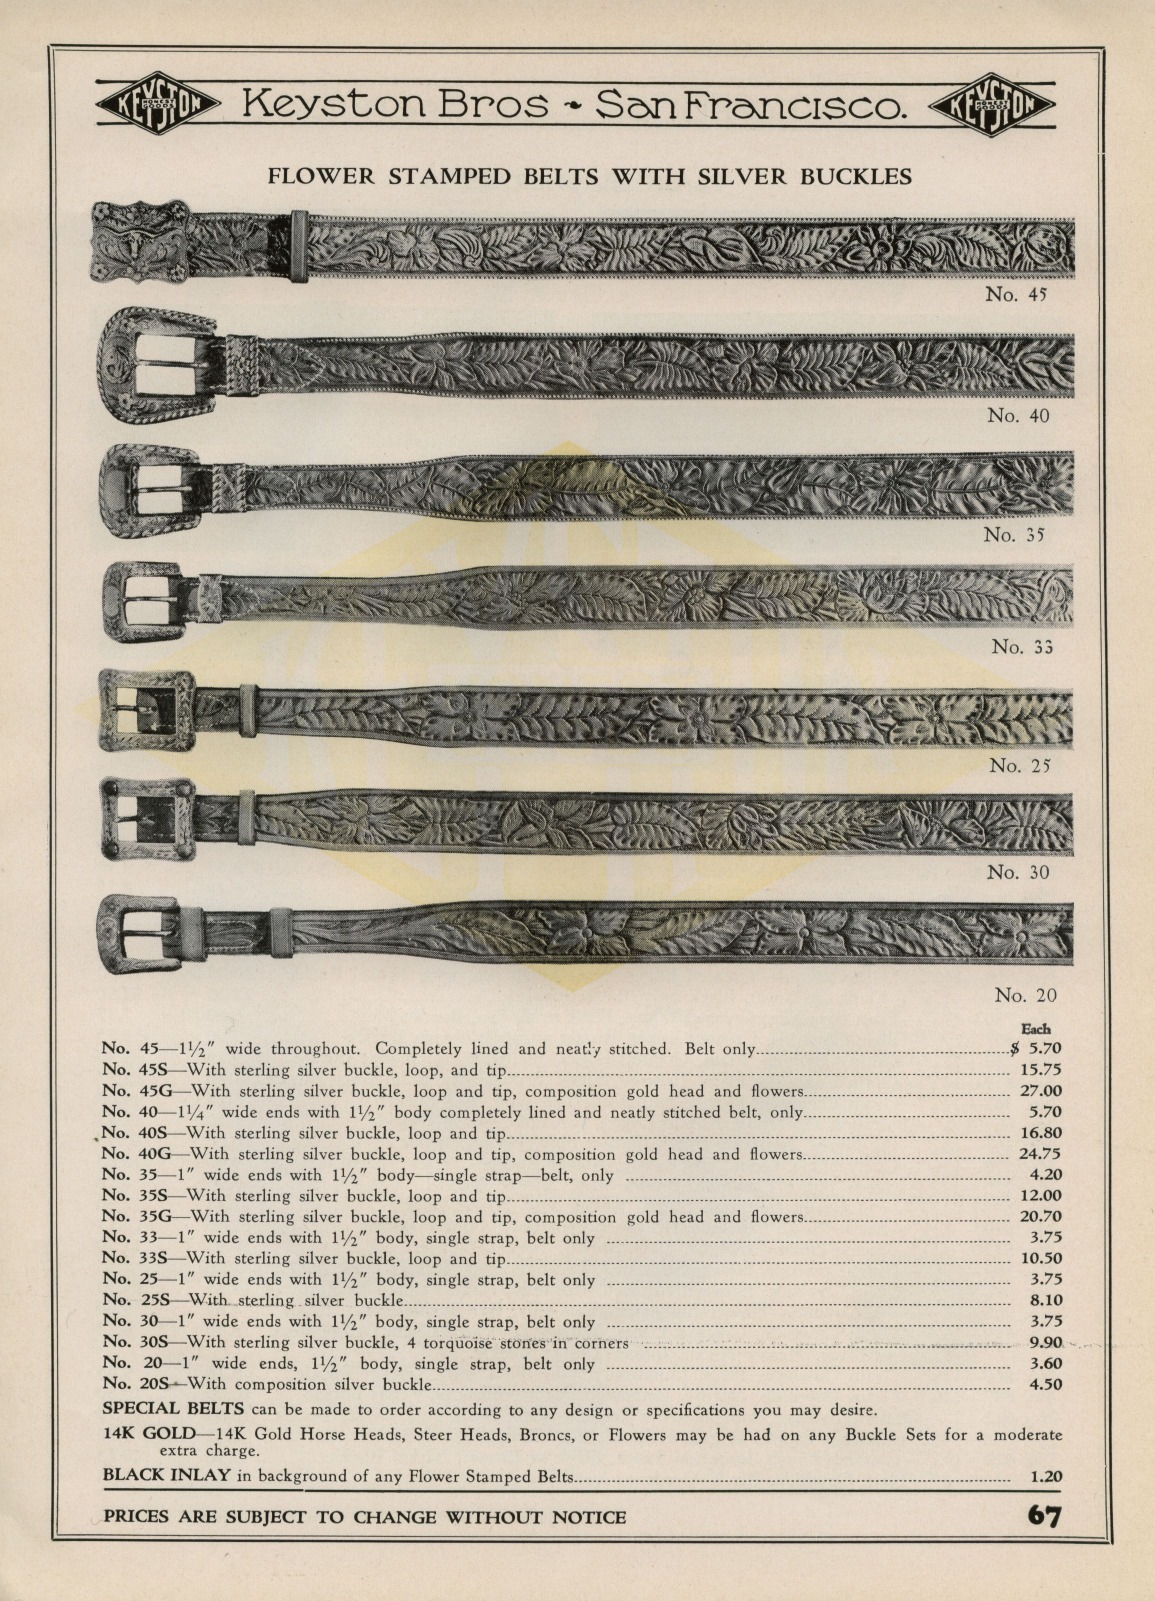 KEYSTON HONEST GOODS Keyston Bros ~ San Francisco. KEYSTON HONEST GOODS
FLOWER STAMPED BELTS WITH SILVER BUCKLES
No. 45
No. 40
No. 35
No. 33
No. 25
No. 30
No. 20
Each
No. 45—1½" wide throughout. Completely lined and neatly stitched. Belt only $ 5.70
No. 45S—With sterling silver buckle, loop, and tip 15.75
No. 45G—With sterling silver buckle, loop and tip, composition gold head and flowers 27.00
No. 40—1¼" wide ends with 1½" body completely lined and neatly stitched belt, only 5.70
No. 40S—With sterling silver buckle, loop and tip 16.80
No. 40G—With sterling silver buckle, loop and tip, composition gold head and flowers 24.75
No. 35—1" wide ends with 1½" body—single strap—belt, only 4.20
No. 35S—With sterling silver buckle, loop and tip 12.00
No. 35G—With sterling silver buckle, loop and tip, composition gold head and flowers 20.70
No. 33—1" wide ends with 1½" body, single strap, belt only 3.75
No. 33S—With sterling silver buckle, loop and tip 10.50
No. 25—1" wide ends with 1½" body, single strap, belt only 3.75
No. 25S—With sterling silver buckle 8.10
No. 30—1" wide ends with 1½" body, single strap, belt only 3.75
No. 30S—With sterling silver buckle, 4 torquoise stones in corners 9.90
No. 20—1" wide ends, 1½" body, single strap, belt only 3.60
No. 20S—With composition silver buckle 4.50
SPECIAL BELTS can be made to order according to any design or specifications you may desire.
14K GOLD—14K Gold Horse Heads, Steer Heads, Broncs, or Flowers may be had on any Buckle Sets for a moderate
extra charge.
BLACK INLAY in background of any Flower Stamped Belts 1.20
PRICES ARE SUBJECT TO CHANGE WITHOUT NOTICE 67